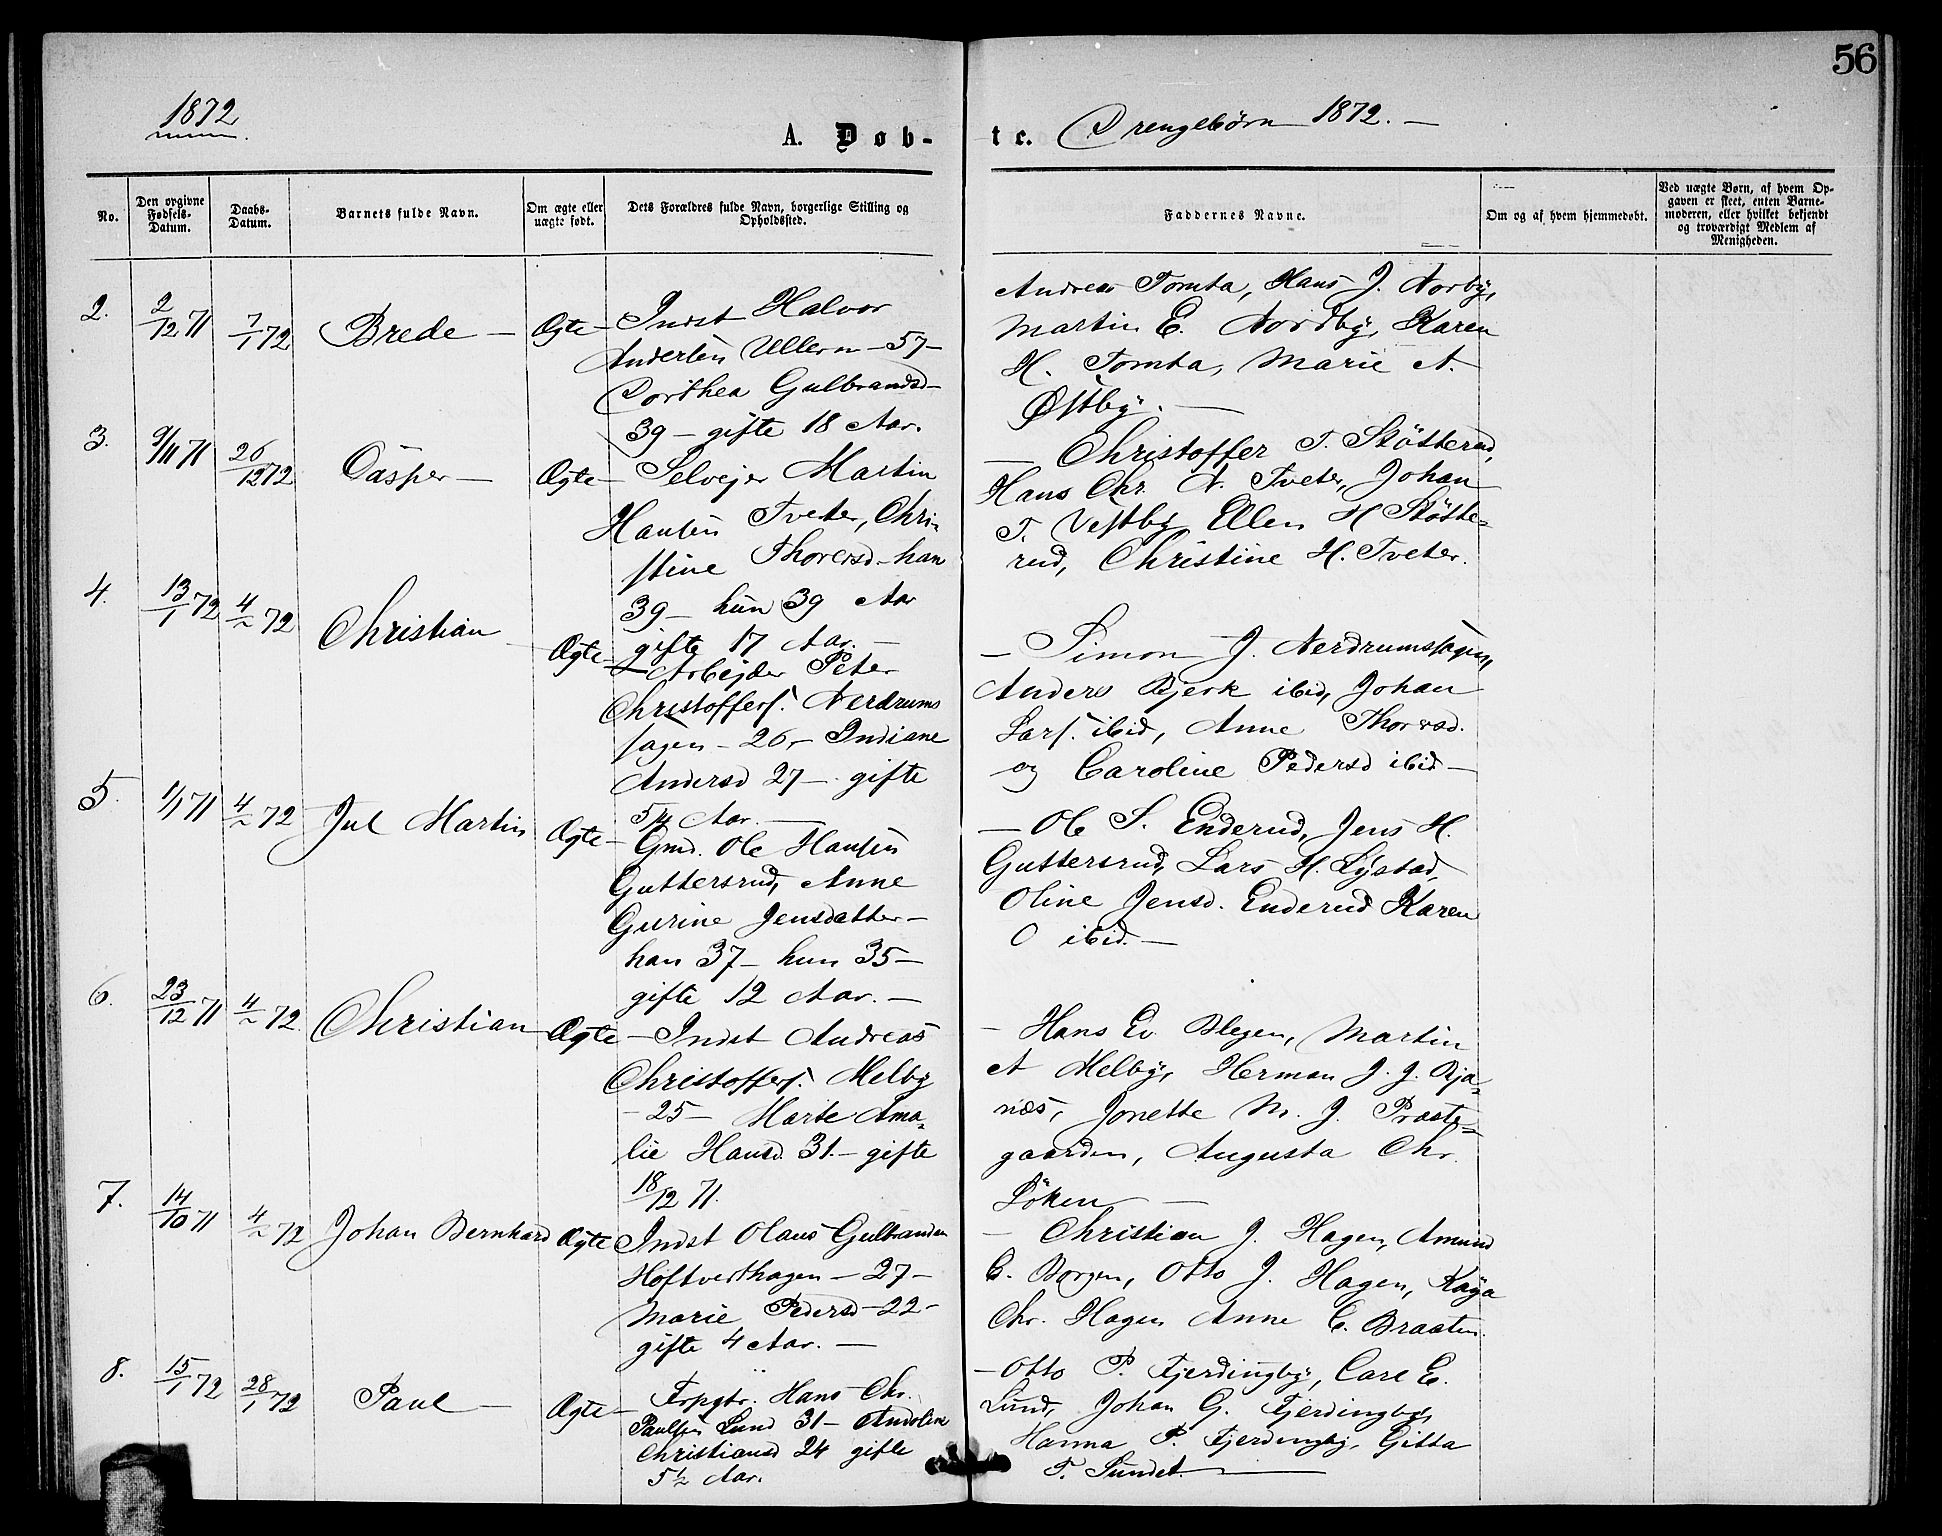 56
1872
A. Døb-
te. Drengebørn 1872. —
No.
Den opgivne Fødsels-Datum.
Daabs-Datum.
Barnets fulde Navn.
Om ægte eller uægte født.
Dets Forældres fulde Navn, borgerlige Stilling og Opholdssted.
Faddernes Navne.
Om og af hvem hjemmedøbt.
Ved uægte Børn, af hvem Opgaven er skeet, enten Barnemoderen, eller hvilket bekjendt og troværdigt Medlem af Menigheden.
2. 2/12 71 7/1 72 Brede — Ægte —
Indst Halvor
Andersen Ullern — 57 —
Dorthea Gulbrandsd —
39 — gifte 18 Aar.
Andreas Tomta, Hans J. Norby,
Martin E. Nordby, Karen
H. Tomta, Marie A.
Østby. —
3. 9/11 71 26/12 72 Casper — Ægte —
Selvejer Martin
Hansen Tveter, Chri-
stine Thorersd — han
39 — hun 39 Aar
gifte 17 Aar. —
— Christoffer T. Stötterud,
Hans Chr. N. Tveter, Johan
T. Vestby Ellen H Stötte-
rud, Christine H. Tveter.
4. 13/1 72 4/2 72 Christian — Ægte —
Arbejder Peter
Christoffers. Nerdrums
sagen — 26, — Indiane
Andersd 27 — gifte
5 1/4 Aar. —
— Simon J. Nerdrumssagen,
Anders Bjerk ibid, Johan
Lars. ibid, Anne Thorersd.
og Caroline Pedersd ibid —
5. 1/1 71 4/2 72 Jul Martin Ægte —
Gmd. Ole Hansen
Guttersrud, Anne
Gurine Jensdatter —
han 37 — hun 35 —
gifte 12 Aar. —
— Ole S. Enderud, Jens H.
Guttersrud, Lars H. Lystad,
Oline Jensd. Enderud Karen
O ibid. —
6. 23/12 71 4/2 72 Christian Ægte —
Indst Andreas
Christoffers. Melby
— 25 — Marte Ama-
lie Hansd. 31. — gifte
18/12 71.
— Hans Ev. Blegen, Martin
A Melby, Herman J. J. Bja-
næs, Jonette M. J. Præste-
gaarden, Augusta Chr.
Löken —
7. 14/10 71 4/2 72 Johan Bernhard Ægte
Indst Olaus Gulbrandsen
Hoftvedthagen — 27 —
Marie Pedersd — 22 —
gifte 4 Aar. —
— Christian J. Hagen, Amund
C. Borgen, Otto J. Hagen, Kaja
Chr. Hagen Anne C. Braaten.
8. 15/1 72 28/1 72 Paul — Ægte —
Forpgtr. Hans Chr.
Paulsen Lund 31 — Andoline
Christiansd 24 gifte
5 1/2 Aar.
— Otto P. Fjerdingby, Carl E.
Lund, Johan G. Fjerdingby,
Hanna P. Fjerdingby, Gitta
T. Sundet. —